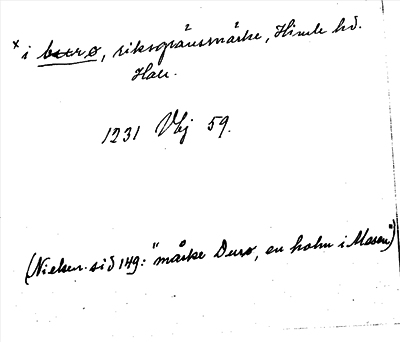 × i burø, riksgränsmärke, Himle hd.
Hall.
1231 Vbj 59.
(Nielsen. sid 149: "märke Durø, en holm i Mosen")